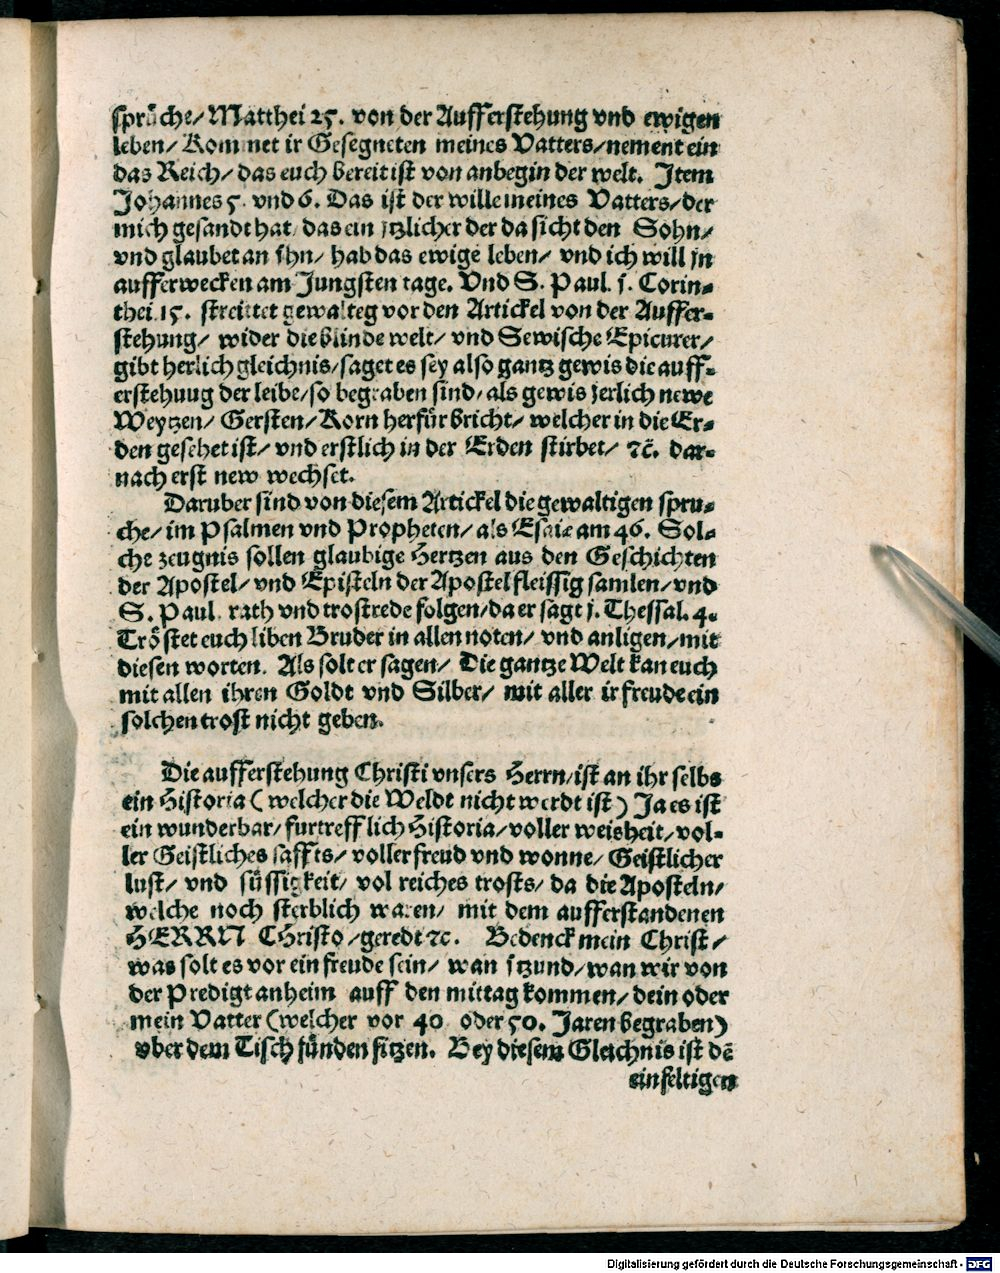 sprüche/ Matthei 25. von der Aufferstehung vnd ewigen
leben/ Kommet ir Gesegneten meines Vatters/ nement ein
das Reich/ das euch bereit ist von anbegin der welt. Item
Johannes 5. vnd 6. Das ist der wille meines Vatters/ der
mich gesandt hat/ das ein itzlicher der da sicht den Sohn/
vnd glaubet an ihn/ hab das ewige leben/ vnd ich will in
aufferwecken am Jungsten tage. Vnd S. Paul. j. Corin-
thei. 15. streittet gewalteg vor den Artickel von der Auffer-
stehung/ wider die blinde welt/ vnd Sewische Epicurer/
gibt herlich gleichnis/ saget es sey also gantz gewis die auff-
erstehuug der leibe/ so begraben sind/ als gewis jerlich newe
Weytzen/ Gersten/ Korn herfür bricht/ welcher in die Er-
den gesehet ist/ vnd erstlich in der Erden stirbet/ ꝛc̄. dar-
nach erst new wechset.
Daruber sind von diesem Artickel die gewaltigen spru-
che/ im Psalmen vnd Propheten/ als Esaie am 46. Sol-
che zeugnis sollen glaubige Hertzen aus den Geschichten
der Apostel/ vnd Episteln der Apostel fleissig samlen/ vnd
S. Paul. rath vnd trostrede folgen/ da er sagt j. Thessal. 4.
Tröstet euch liben Bruder in allen noten/ vnd anligen/ mit
diesen worten. Als solt er sagen/ Die gantze Welt kan euch
mit allen ihren Goldt vnd Silber/ mit aller ir freude ein
solchen trost nicht geben.
Die aufferstehung Christi vnsers Herrn/ ist an ihr selbs
ein Historia ( welcher die Weldt nicht werdt ist ) Ja es ist
ein wunderbar/ furtrefflich Historia/ voller weisheit/ vol-
ler Geistliches saffts/ voller freud vnd wonne/ Geistlicher
lust/ vnd süssigkeit/ vol reiches trosts/ da die Aposteln/
welche noch sterblich waren/ mit dem aufferstandenen
HERRN CHristo/ geredt ꝛc. Bedenck mein Christ/
was solt es vor ein freude sein/ wan itzund/ wan wir von
der Predigt anheim auff den mittag kommen/ dein oder
mein Vatter (welcher vor 40 oder 50. Jaren begraben)
vber dem Tisch fünden sitzen. Bey diesem Gleichnis ist dē
einfeltigen
Digitalisierung gefördert durch die Deutsche Forschungsgemeinschaft - DFG